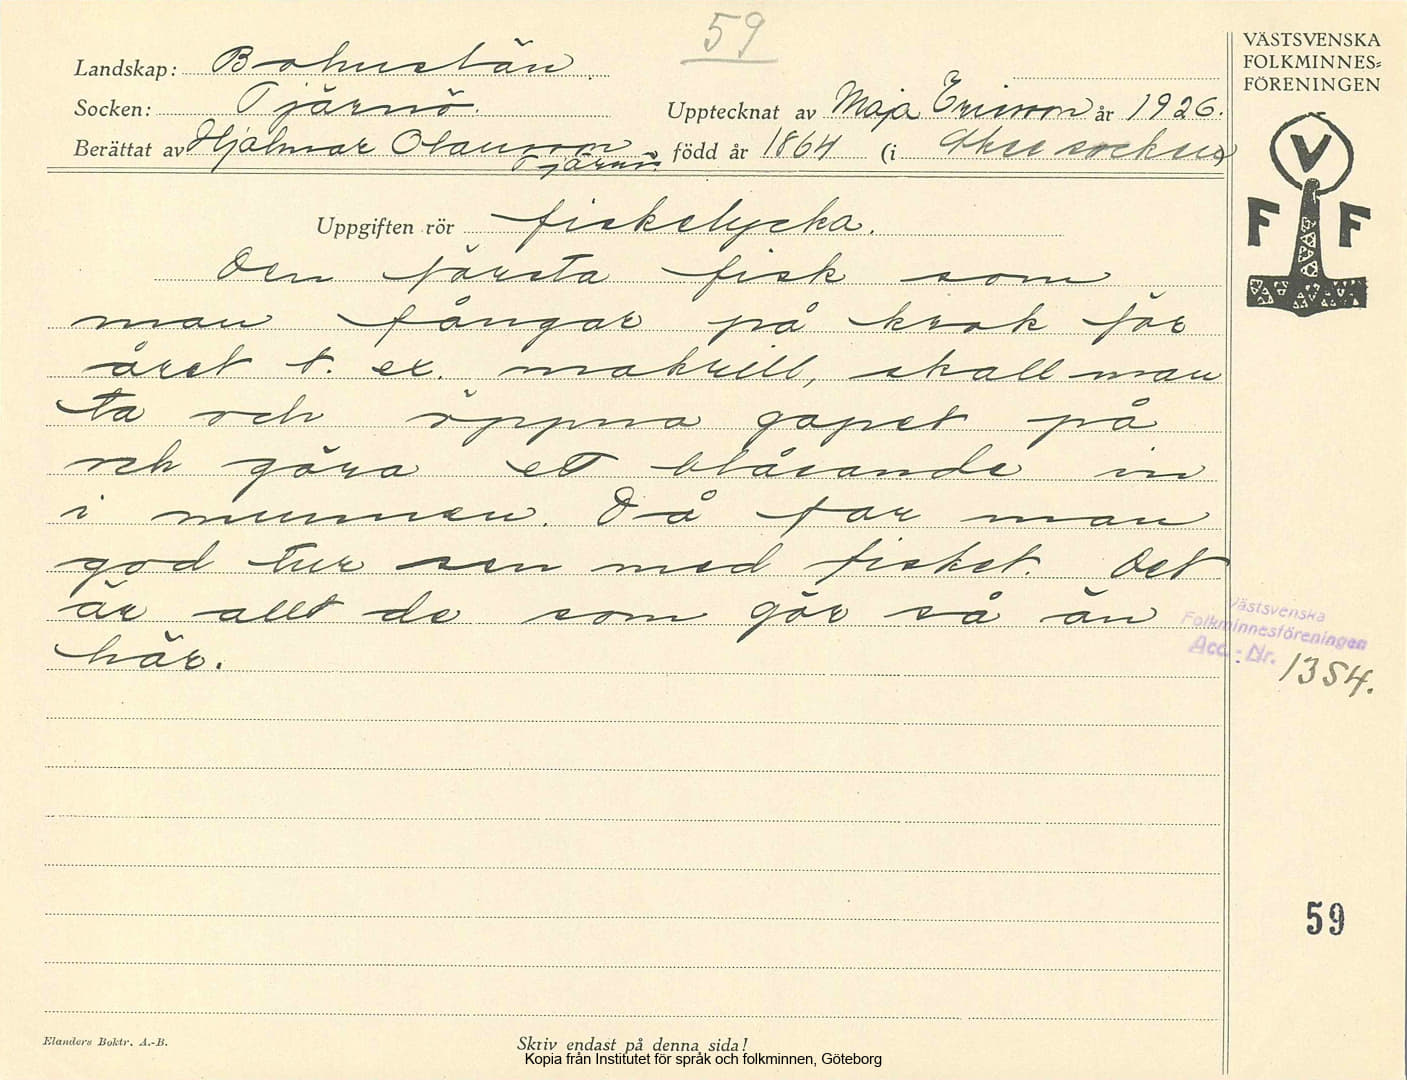 59
Landskap: Bohuslän.
Socken: Tjärnö.
Upptecknat av Maja Ericsson år 1926.
Berättat av Hjalmar Olausson Tjärnö. född år 1864 (i
VÄSTSVENSKA
FOLKMINNES=
FÖRENINGEN
V
F F
Uppgiften rör fiskelycka.
Den första fisk som
man fångar på krok för
året t. ex. makrill, skall man
ta och öppna gapet på
och göra ett blåsande in
i munnen. Då far man
god tur sen med fisket. Det
är allt de som gör så än
här.
Västsvenska
Folkminnesföreningen
Acc.-Nr. 1354.
59
Elanders Boktr. A.-B.
Skriv endast på denna sida!
Kopia från Institutet för språk och folkminnen, Göteborg